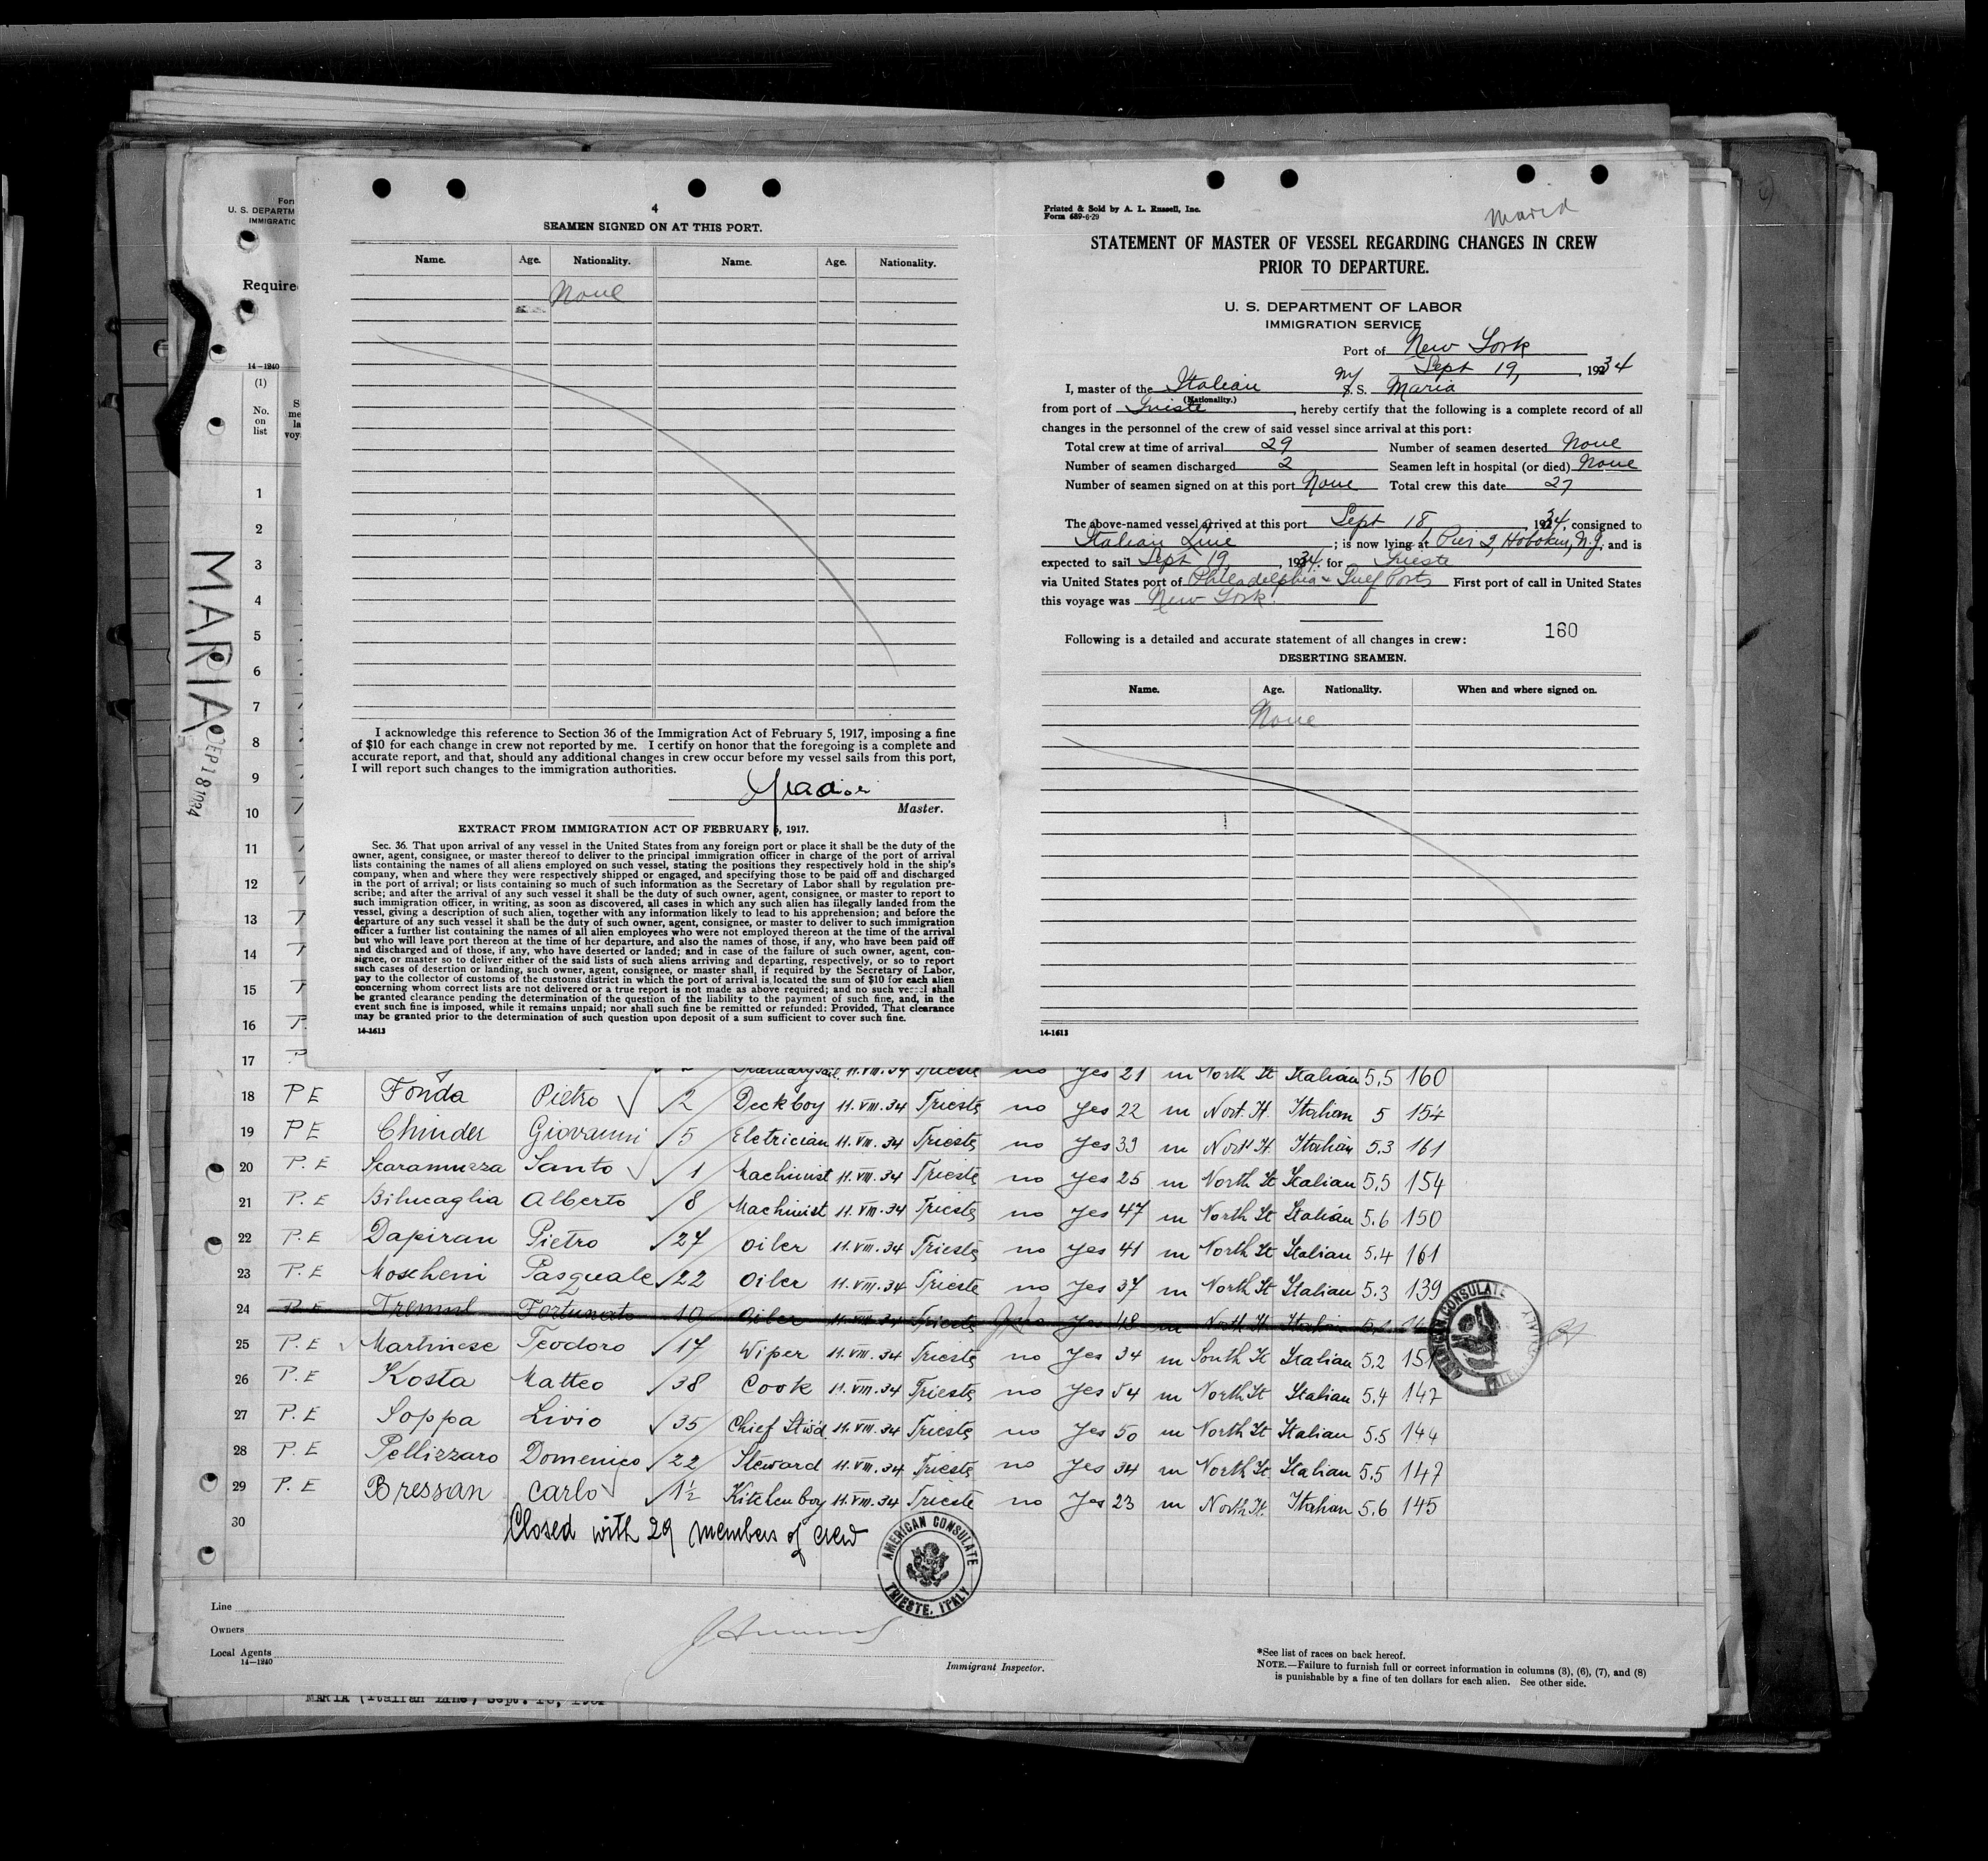 4
SEAMEN SIGNED ON AT THIS PORT.
Name. Age. Nationality. Name. Age. Nationality.
None
I acknowledge this reference to Section 36 of the Immigration Act of February 5, 1917, imposing a fine
of $10 for each change in crew not reported by me. I certify on honor that the foregoing is a complete and
accurate report, and that, should any additional changes in crew occur before my vessel sails from this port,
I will report such changes to the immigration authorities.
Master.
EXTRACT FROM IMMIGRATION ACT OF FEBRUARY 5, 1917.
Sec. 36. That upon arrival of any vessel in the United States from any foreign port or place it shall be the duty of the
owner, agent, consignee, or master thereof to deliver to the principal immigration officer in charge of the port of arrival
lists containing the names of all aliens employed on such vessel, stating the positions they respectively hold in the ship's
company, when and where they were respectively shipped or engaged, and specifying those to be paid off and discharged
in the port of arrival; or lists containing so much of such information as the Secretary of Labor shall by regulation pre-
scribe; and after the arrival of any such vessel it shall be the duty of such owner, agent, consignee, or master to report to
such immigration officer, in writing, as soon as discovered, all cases in which any such alien has illegally landed from the
vessel, giving a description of such alien, together with any information likely to lead to his apprehension; and before the
departure of any such vessel it shall be the duty of such owner, agent, consignee, or master to deliver to such immigration
officer a further list containing the names of all alien employees who were not employed thereon at the time of the arrival
but who will leave port thereon at the time of her departure, and also the names of those, if any, who have been paid off
and discharged and of those, if any, who have deserted or landed; and in case of the failure of such owner, agent, con-
signee, or master so to deliver either of the said lists of such aliens arriving and departing, respectively, or so to report
such cases of desertion or landing, such owner, agent, consignee, or master shall, if required by the Secretary of Labor,
pay to the collector of customs of the customs district in which the port of arrival is located the sum of $10 for each alien
concerning whom correct lists are not delivered or a true report is not made as above required; and no such vessel shall
be granted clearance pending the determination of the question of the liability to the payment of such fine, and, in the
event such fine is imposed, while it remains unpaid; nor shall such fine be remitted or refunded: Provided, That clearance
may be granted prior to the determination of such question upon deposit of a sum sufficient to cover such fine.
14-1613
Printed & Sold by A. L. Russell, Inc.
Form 689-6-29
Maria
STATEMENT OF MASTER OF VESSEL REGARDING CHANGES IN CREW
PRIOR TO DEPARTURE.
U. S. DEPARTMENT OF LABOR
IMMIGRATION SERVICE
Port of New York
Sept 19, , 1934
I, master of the Italian M/S. S. Maria
(Nationality.)
from port of Trieste , hereby certify that the following is a complete record of all
changes in the personnel of the crew of said vessel since arrival at this port:
Total crew at time of arrival 29 Number of seamen deserted None
Number of seamen discharged 2 Seamen left in hospital (or died) None
Number of seamen signed on at this port None Total crew this date 27
The above-named vessel arrived at this port Sept 18, , 1934, consigned to
Italian Line ; is now lying at Pier 2, Hoboken, N.J. and is
expected to sail Sept 19, , 1934: for Trieste
via United States port of Philadelphia & Gulf Ports First port of call in United States
this voyage was New York.
Following is a detailed and accurate statement of all changes in crew: 160
DESERTING SEAMEN.
Name. Age. Nationality. When and where signed on.
None
14-1613
For
U. S. DEPARTM
IMMIGRATIO
Require
14-1240
(1)
No.
on
list
MARIA
SEP 18 1934
1
2
3
4
5
6
7
8
9
10
11
12
13
14
15
16
17 11.VIII.34 Trieste no yes 21 m North It Italian 5.5 160
18 P E Fonda Pietro 2 Deckboy 11.VIII.34 Trieste no yes 22 m Nort. It. Italian 5 154
19 P E Chinder Giovanni 5 Eletrician 11.VIII.34 Trieste no yes 39 m North It. Italian 5.3 161
20 P. E Scaramuzza Santo 1 Machinist 11.VIII.34 Trieste no yes 25 m North It Italian 5.5 154
21 P. E Bilucaglia Alberto 8 Machinist 11.VIII.34 Trieste no yes 47 m North It Italian 5.6 150
22 P. E Dapiran Pietro 27 oiler 11.VIII.34 Trieste no yes 41 m North It Italian 5.4 161
23 P. E Moscheni Pasquale 22 oiler 11.VIII.34 Trieste no yes 37 m North It Italian 5.3 139
24 P. E Fortunato 10 oiler 11.VIII.34 Trieste yes 48 m North It. Italian
25 P. E Martinese Teodoro 17 Wiper 11.VIII.34 Trieste no yes 34 m South It Italian 5.2 151
26 P. E Kosta Matteo 38 Cook 11.VIII.34 Trieste no yes 54 m North It Italian 5.4 147
27 P. E Soppa Livio 35 Chief Stw'd 11.VIII.34 Trieste no yes 50 m North It Italian 5.5 144
28 P. E Pellizzaro Domenico 22 Steward 11.VIII.34 Trieste no yes 34 m North It. Italian 5.5 147
29 P. E Bressan Carlo 1½ Kitchen boy 11.VIII.34 Trieste no yes 23 m North It. Italian 5.6 145
30 Closed with 29 members of crew
AMERICAN CONSULATE
AMERICAN CONSULATE
TRIESTE, ITALY
Line
Owners
Local Agents
14-1240
Immigrant Inspector.
*See list of races on back hereof.
NOTE.—Failure to furnish full or correct information in columns (3), (6), (7), and (8)
is punishable by a fine of ten dollars for each alien. See other side.
MARIA (Italian Line) Sept. 18, 1934